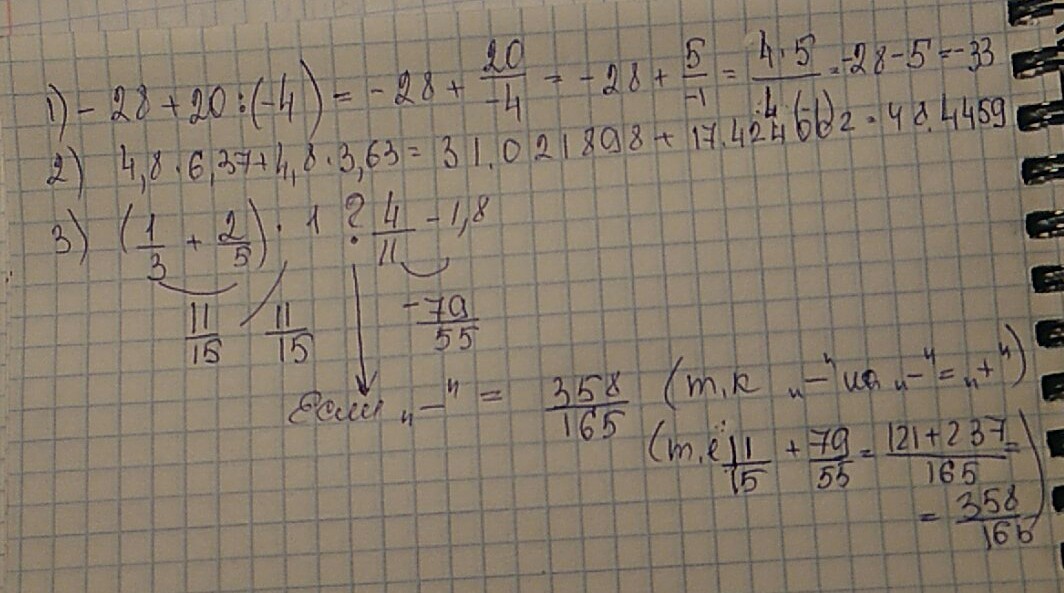 1) - 28 + 20 : (-4) = -28 + 20/-4 = -28 + 5/-1 = 4·5/4(-1) = -28-5 = -33
2) 4,8 · 6,37 + 4,8 · 3,63 = 31.021898 + 17.424 = 48.4459
3) (1/3 + 2/5) · 1 ? 4/11 - 1,8
11/15 11/15 -79/55
Если "-" = 358/165 (т.к "-" на "-" = "+")
(т.е 11/15 + 79/55 = 121+237/165 =
= 358/165)